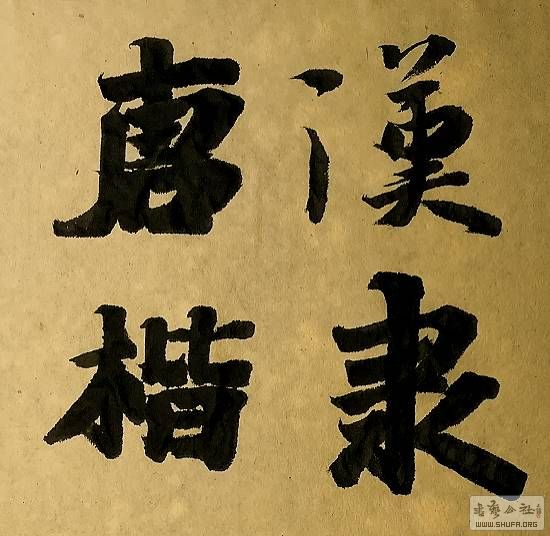 漢隸
唐楷
書藝公社
WWW.SHUFA.ORG